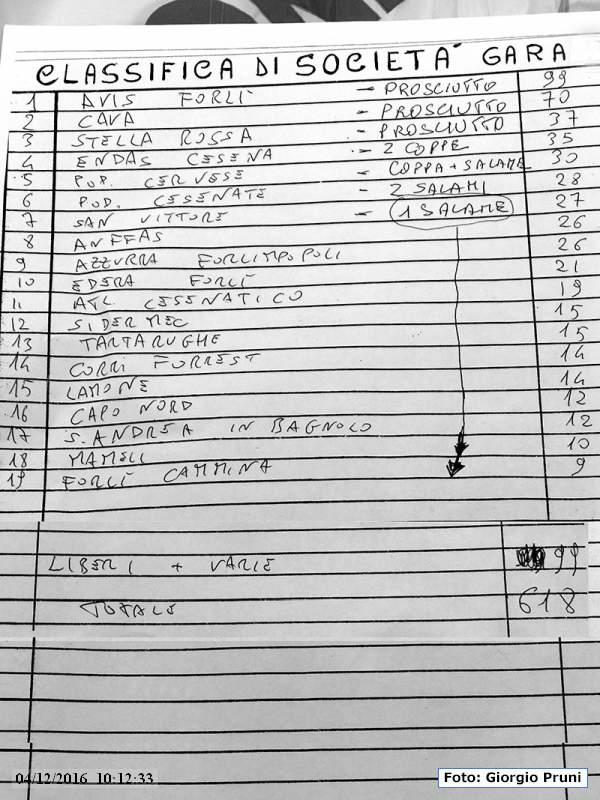 CLASSIFICA DI SOCIETÀ GARA
1 AVIS FORLÌ - PROSCIUTTO 99
2 CAVA - PROSCIUTTO 70
3 STELLA ROSSA - PROSCIUTTO 37
4 ENDAS CESENA - 2 COPPE 35
5 POD. CERVESE - COPPA + SALAME 30
6 POD. CESENATE - 2 SALAMI 28
7 SAN VITTORE - 1 SALAME 27
8 ANFFAS 26
9 AZZURRA FORLIMPOPOLI 26
10 EDERA FORLÌ 21
11 ATL CESENATICO 19
12 SIDERMEC 15
13 TARTARUGHE 15
14 CORRI FORREST 14
15 LAMONE 14
16 CAPO NORD 12
17 S. ANDREA IN BAGNOLO 12
18 MAMELI 10
19 FORLÌ CAMMINA 9
LIBERI + VARIE 99
TOTALE 618
04/12/2016 10:12:33
Foto: Giorgio Pruni